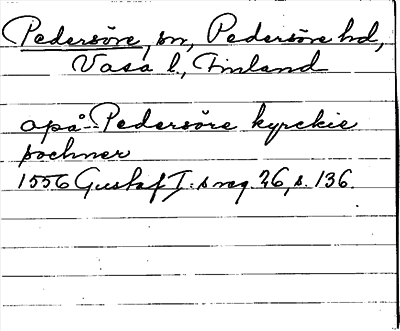 Pedersöre, sn, Pedersöre hd,
Vasa l., Finland
opå Pedersöre kyrckie
sochner
1556 Gustaf I:s reg. 26, s. 136.